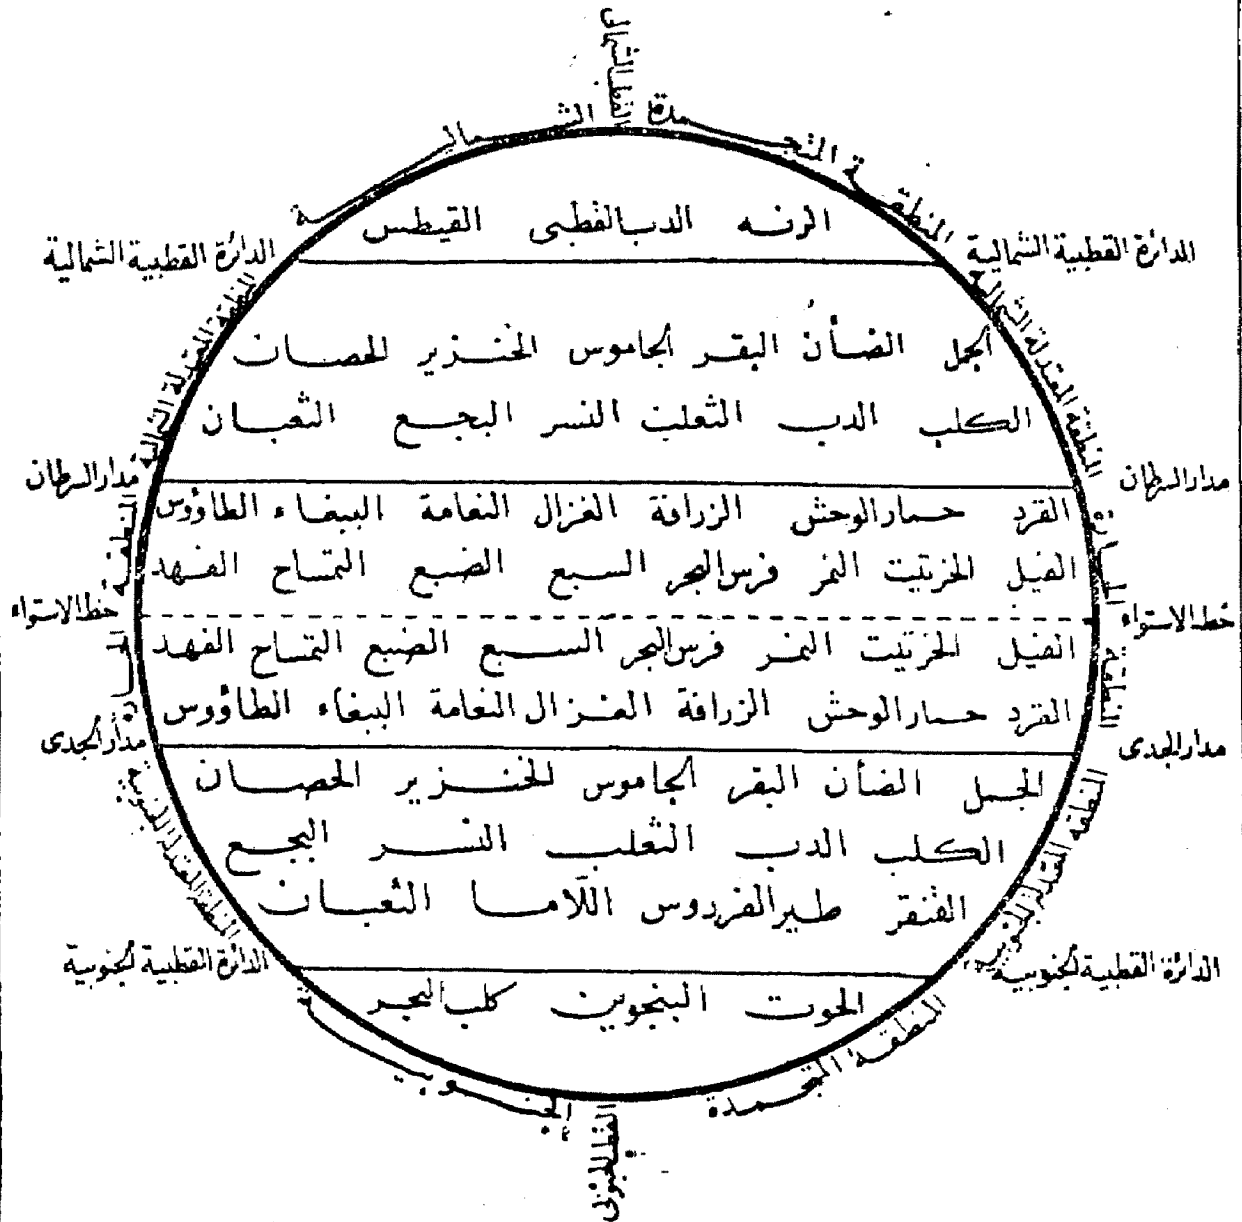 القطب الشمالى
المنطقة المتجمدة الشمالية
الدائرة القطبية الشمالية
الرنه الدب القطبى القيطس
الدائرة القطبية الشمالية
المنطقة المعتدلة الشمالية
المنطقة المعتدلة الشمالية
الجمل الضأن البقر الجاموس الخنزير الحصان
الكلب الدب الثعلب النسر البجع الثعبان
مدار السرطان
مدار السرطان
القرد حمار الوحش الزرافة الغزال النعامة الببغاء الطاؤوس
الفيل الخرتيت النمر فرس البحر السبع الضبع التمساح الفهد
المنطقة الحارة
المنطقة الحارة
خط الاستواء
خط الاستواء
الفيل الخرتيت النمر فرس البحر السبع الضبع التمساح الفهد
القرد حمار الوحش الزرافة الغزال النعامة الببغاء الطاؤوس
مدار الجدى
مدار الجدى
الجمل الضأن البقر الجاموس الخنزير الحصان
الكلب الدب الثعلب النسر البجع
القنقر طير الفردوس اللاما الثعبان
المنطقة المعتدلة الجنوبية
المنطقة المعتدلة الجنوبية
الدائرة القطبية الجنوبية
الدائرة القطبية الجنوبية
الحوت البنجوين كلب البحر
المنطقة المتجمدة الجنوبية
القطب الجنوبى